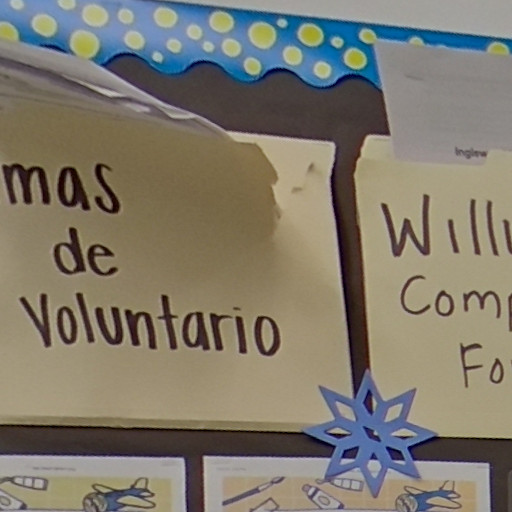 mas
de
Voluntario
Inglew
Willi
Comp
Fo